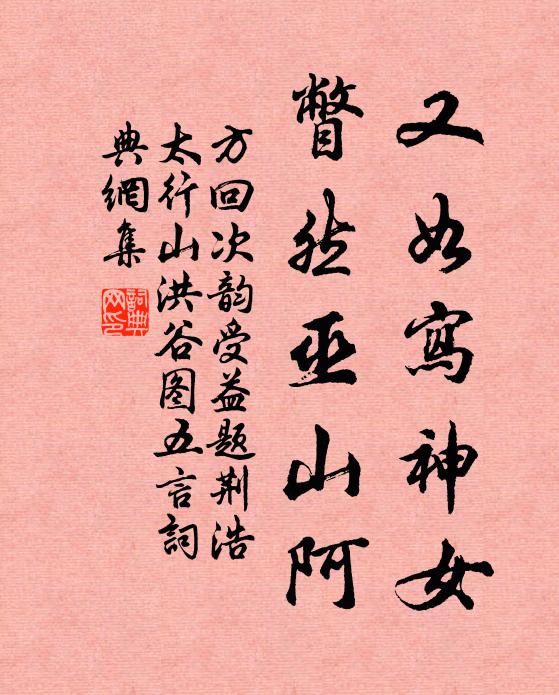 又如寫神女
瞥然巫山阿
方回次韵受益题荆浩
太行山洪谷图五言詞
典網集
詞典网印